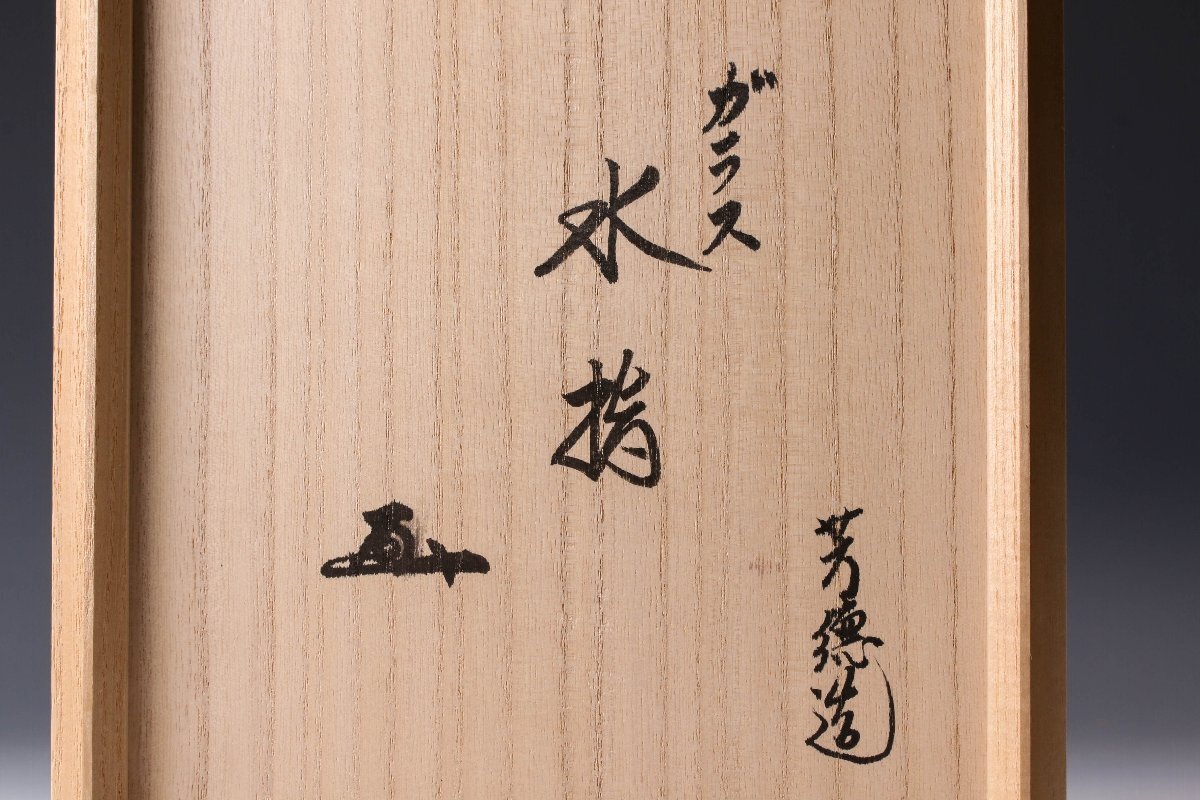 ガラス
水指
芳徳造